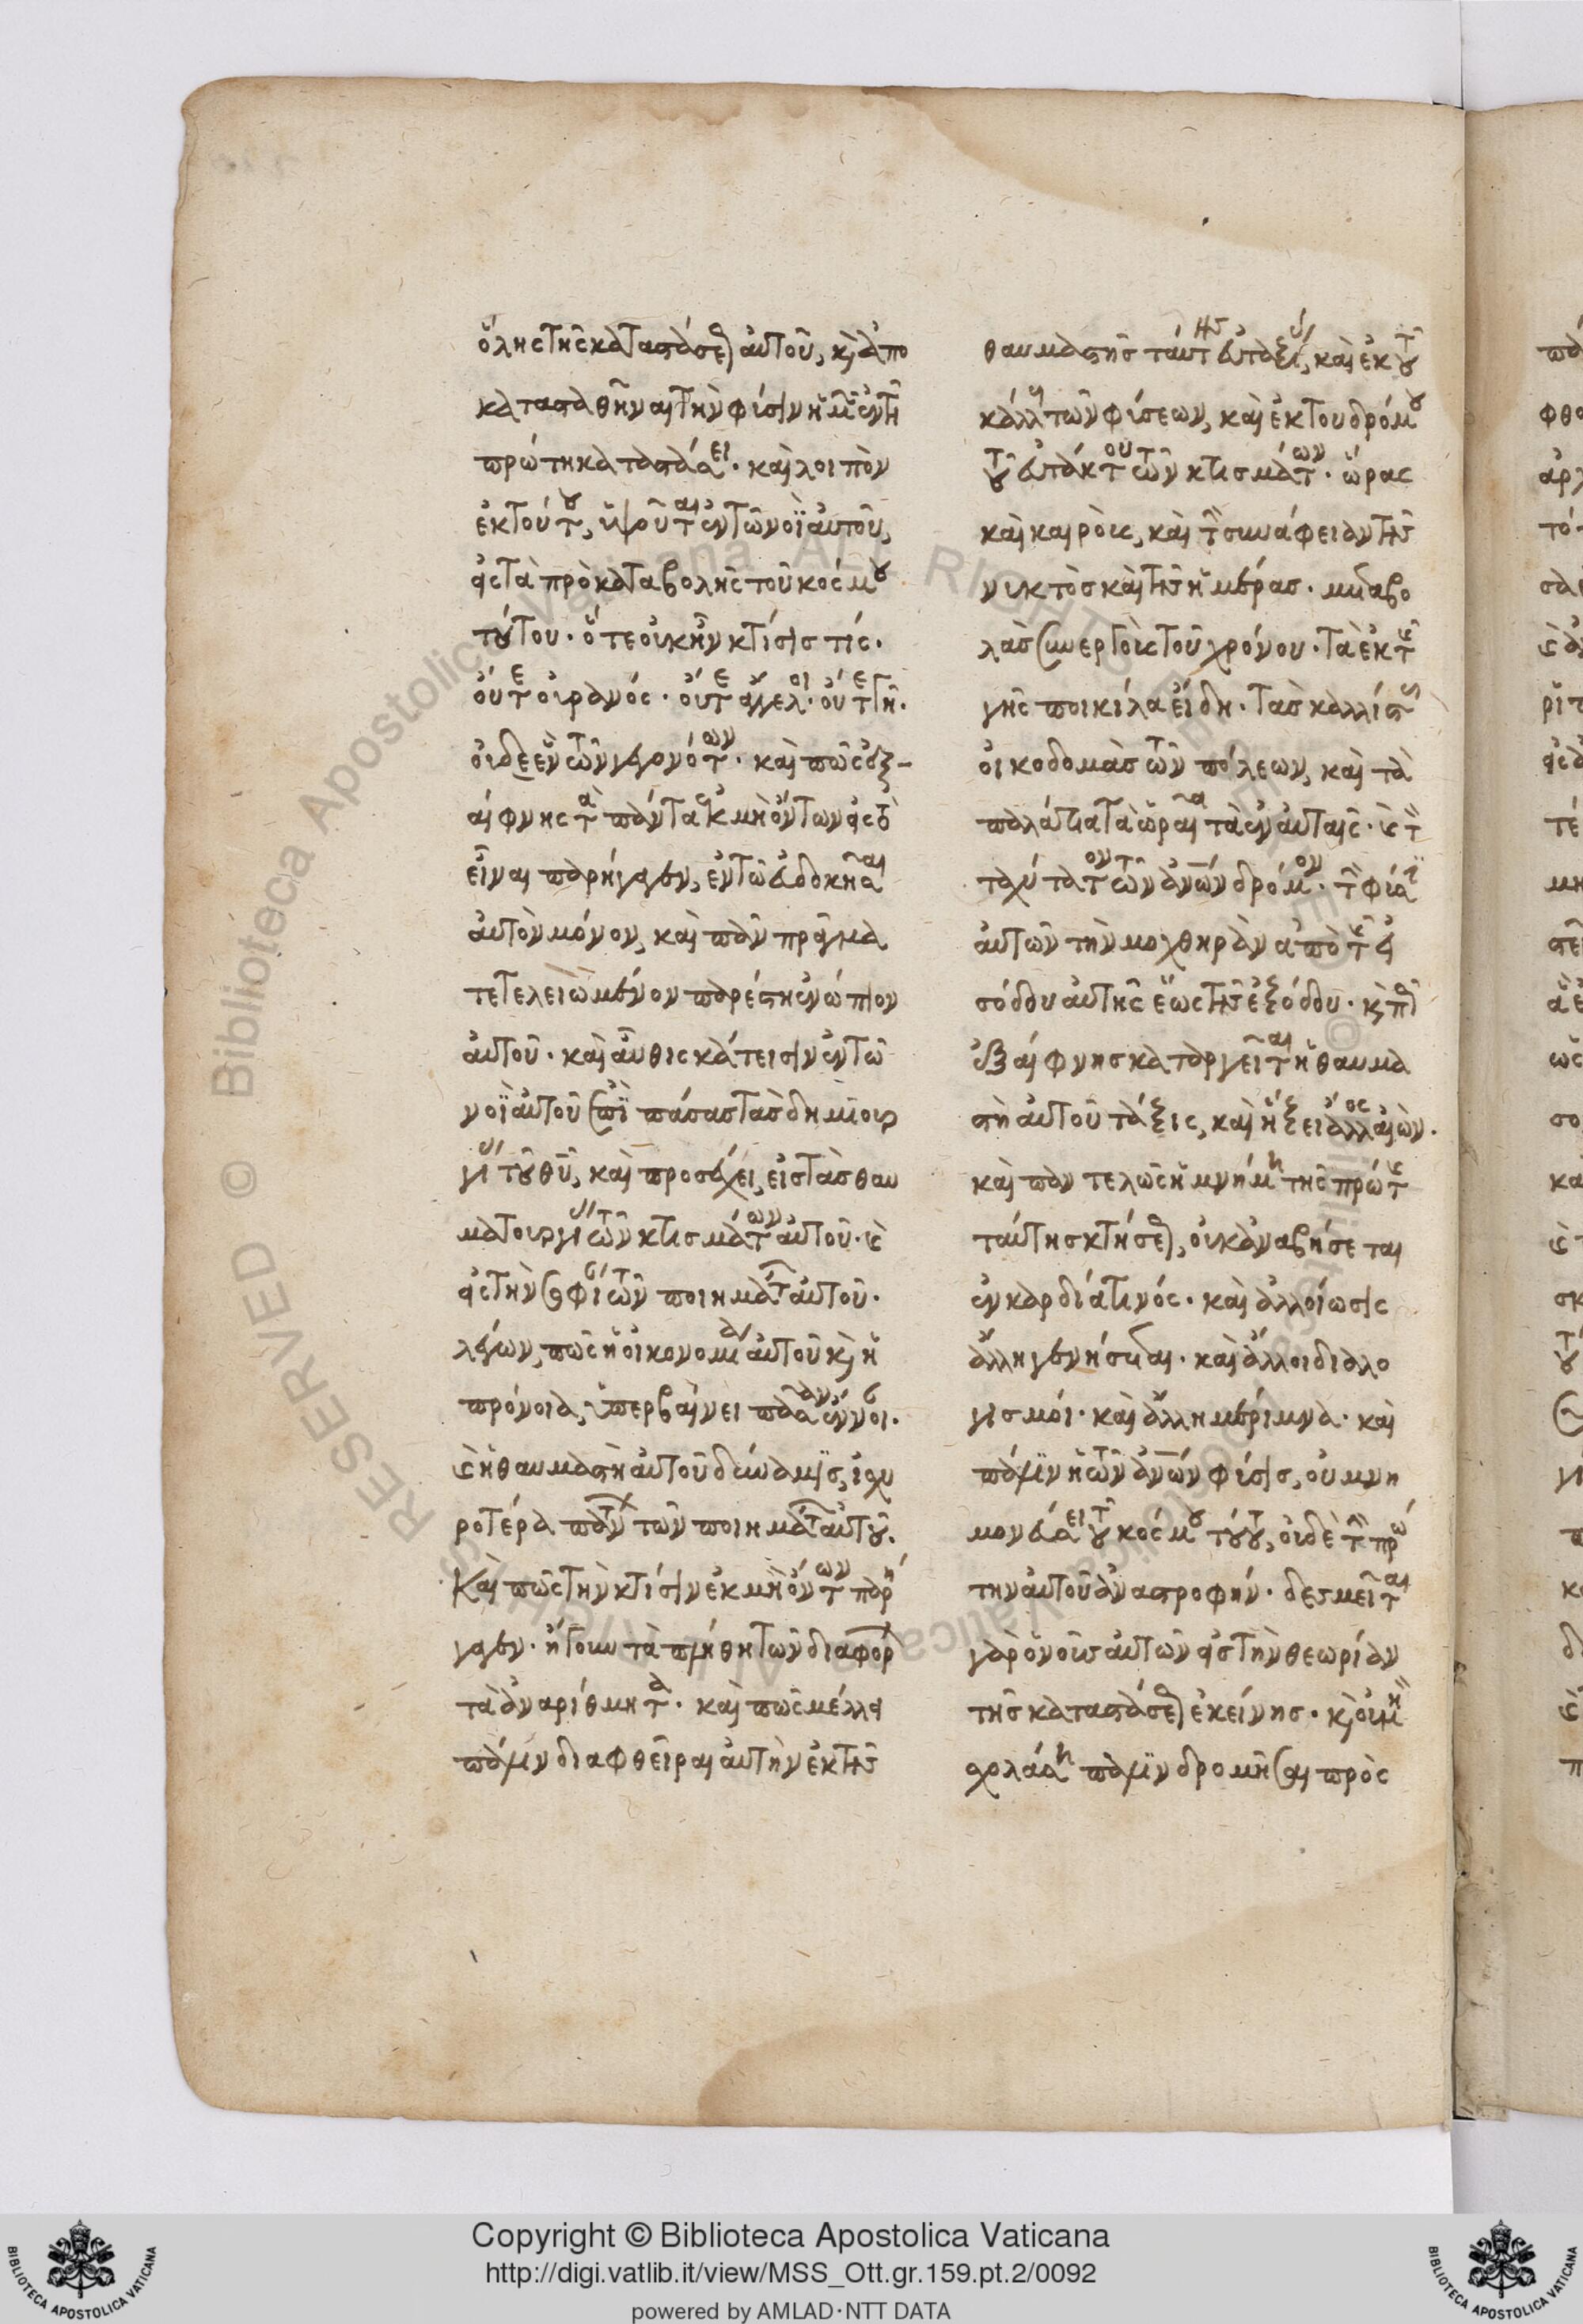 ὅλης τῆς καταστάσεως αὐτοῦ, καὶ ἀπο
καταστα θῆναι τὴν φύσιν ἡμῶν ἐν τῇ
πρώτη καταστάσει. καὶ λοιπὸν
ἐκ τούτου, ὑψοῦται ἐν τῶ νοῒ αὐτοῦ,
εἰς τὰ πρὸ καταβολῆς τοῦ κόσμου
τούτου. ὅτε οὐκ ἦν κτίσις τίς.
οὔτε οὐρανός. οὔτε ἄγγελοι. οὔτε γῆ.
οὐδὲ ἓν τῶν γεγονότων. καὶ πῶς ἐξ-
αίφνης τὰ πάντα ἐκ μὴ ὄντων εἰς τὸ
εἶναι παρήγαγεν, ἐν τῶ εὐδοκῆσαι
αὐτὸν μόνον, καὶ πᾶν πρᾶγμα
τετελειωμένον παρέστη ἐνώπιον
αὐτοῦ. καὶ αὖθις κάτεισιν ἐν τῶ
νοῒ αὐτοῦ ἐπὶ πάσας τὰς δημιουρ
γίας τοῦ θῦ, καὶ προσέχει, εἰς τὰς θαυ
ματουργίας τῶν κτισμάτων αὐτοῦ. καὶ
εἰς τὴν σοφίαν τῶν ποιημάτων αὐτοῦ.
λέγων, πῶς ἡ οἰκονομία αὐτοῦ καὶ ἡ
πρόνοια, ὑπερβαίνει πᾶσαν ἔννοιαν.
καὶ ἡ θαυμαστὴ αὐτοῦ δύναμις, ἰσχυ
ροτέρα πάντων τῶν ποιημάτων αὐτοῦ.
Καὶ πῶς τὴν κτίσιν ἐκ μὴ ὄντων παρή
γαγεν. ἤγουν τὰ πλήθη τῶν διαφόρων
τὰ ἀναρίθμητα. καὶ πῶς μέλλει
πάλιν διαφθεῖραι αὐτὴν ἐκ τῆς
θαυμαστῆς ταύτης εὐταξίας, καὶ ἐκ τοῦ
κάλλους τῶν φύσεων, καὶ ἐκ τοῦ δρόμου
τοῦ εὐτάκτου τῶν κτισμάτων. ὥρας
καὶ καιροὺς, καὶ τὴν συνάφειαν τῆς
νυκτὸς καὶ τῆς ἡμέρας. μεταβο
λὰς συνεργοὺς τοῦ χρόνου. τὰ ἐκ τῆς
γῆς ποικίλα εἴδη. τὰς καλλίστας
οἰκοδομὰς τῶν πόλεων, καὶ τὰ
παλάτια τὰ ὡραῖα τὰ ἐν αὐταῖς. καὶ τὸν
ταχύτατον τῶν ἀνῶν δρόμον. τὴν φύσιν
αὐτῶν τὴν μοχθηρὰν ἀπὸ τῆς εἰ
σόδου αὐτῆς ἕως τῆς ἐξόδου. καὶ πῶς
ἐξαίφνης καταργεῖται ἡ θαυμα
στὴ αὐτοῦ τάξις, καὶ ἥξει ἄλλος αἰών.
καὶ παντελῶς ἡ μνήμη τῆς πρώτης
ταύτης κτήσεως, οὐκ ἀναβήσεται
ἐν καρδία τινός. καὶ ἀλλοίωσις
ἄλλη γενήσεται. καὶ ἄλλοι διαλο
γισμοί. καὶ ἄλλη μέριμνα. καὶ
πάλιν ἡ τῶν ἀνῶν φύσις, οὐ μνη
μονεύσει τοῦ κόσμου τούτου, οὐδὲ τὴν πρώ
την αὐτοῦ ἀναστροφήν. δεσμεῖται
γὰρ ὁ νοῦς αὐτῶν εἰς τὴν θεωρίαν
τῆς καταστάσεως ἐκείνης. καὶ οὐ μὴ
σχολάση πάλιν δρομῆσαι πρὸς
Copyright © Biblioteca Apostolica Vaticana
http://digi.vatlib.it/view/MSS_Ott.gr.159.pt.2/0092
powered by AMLAD·NTT DATA